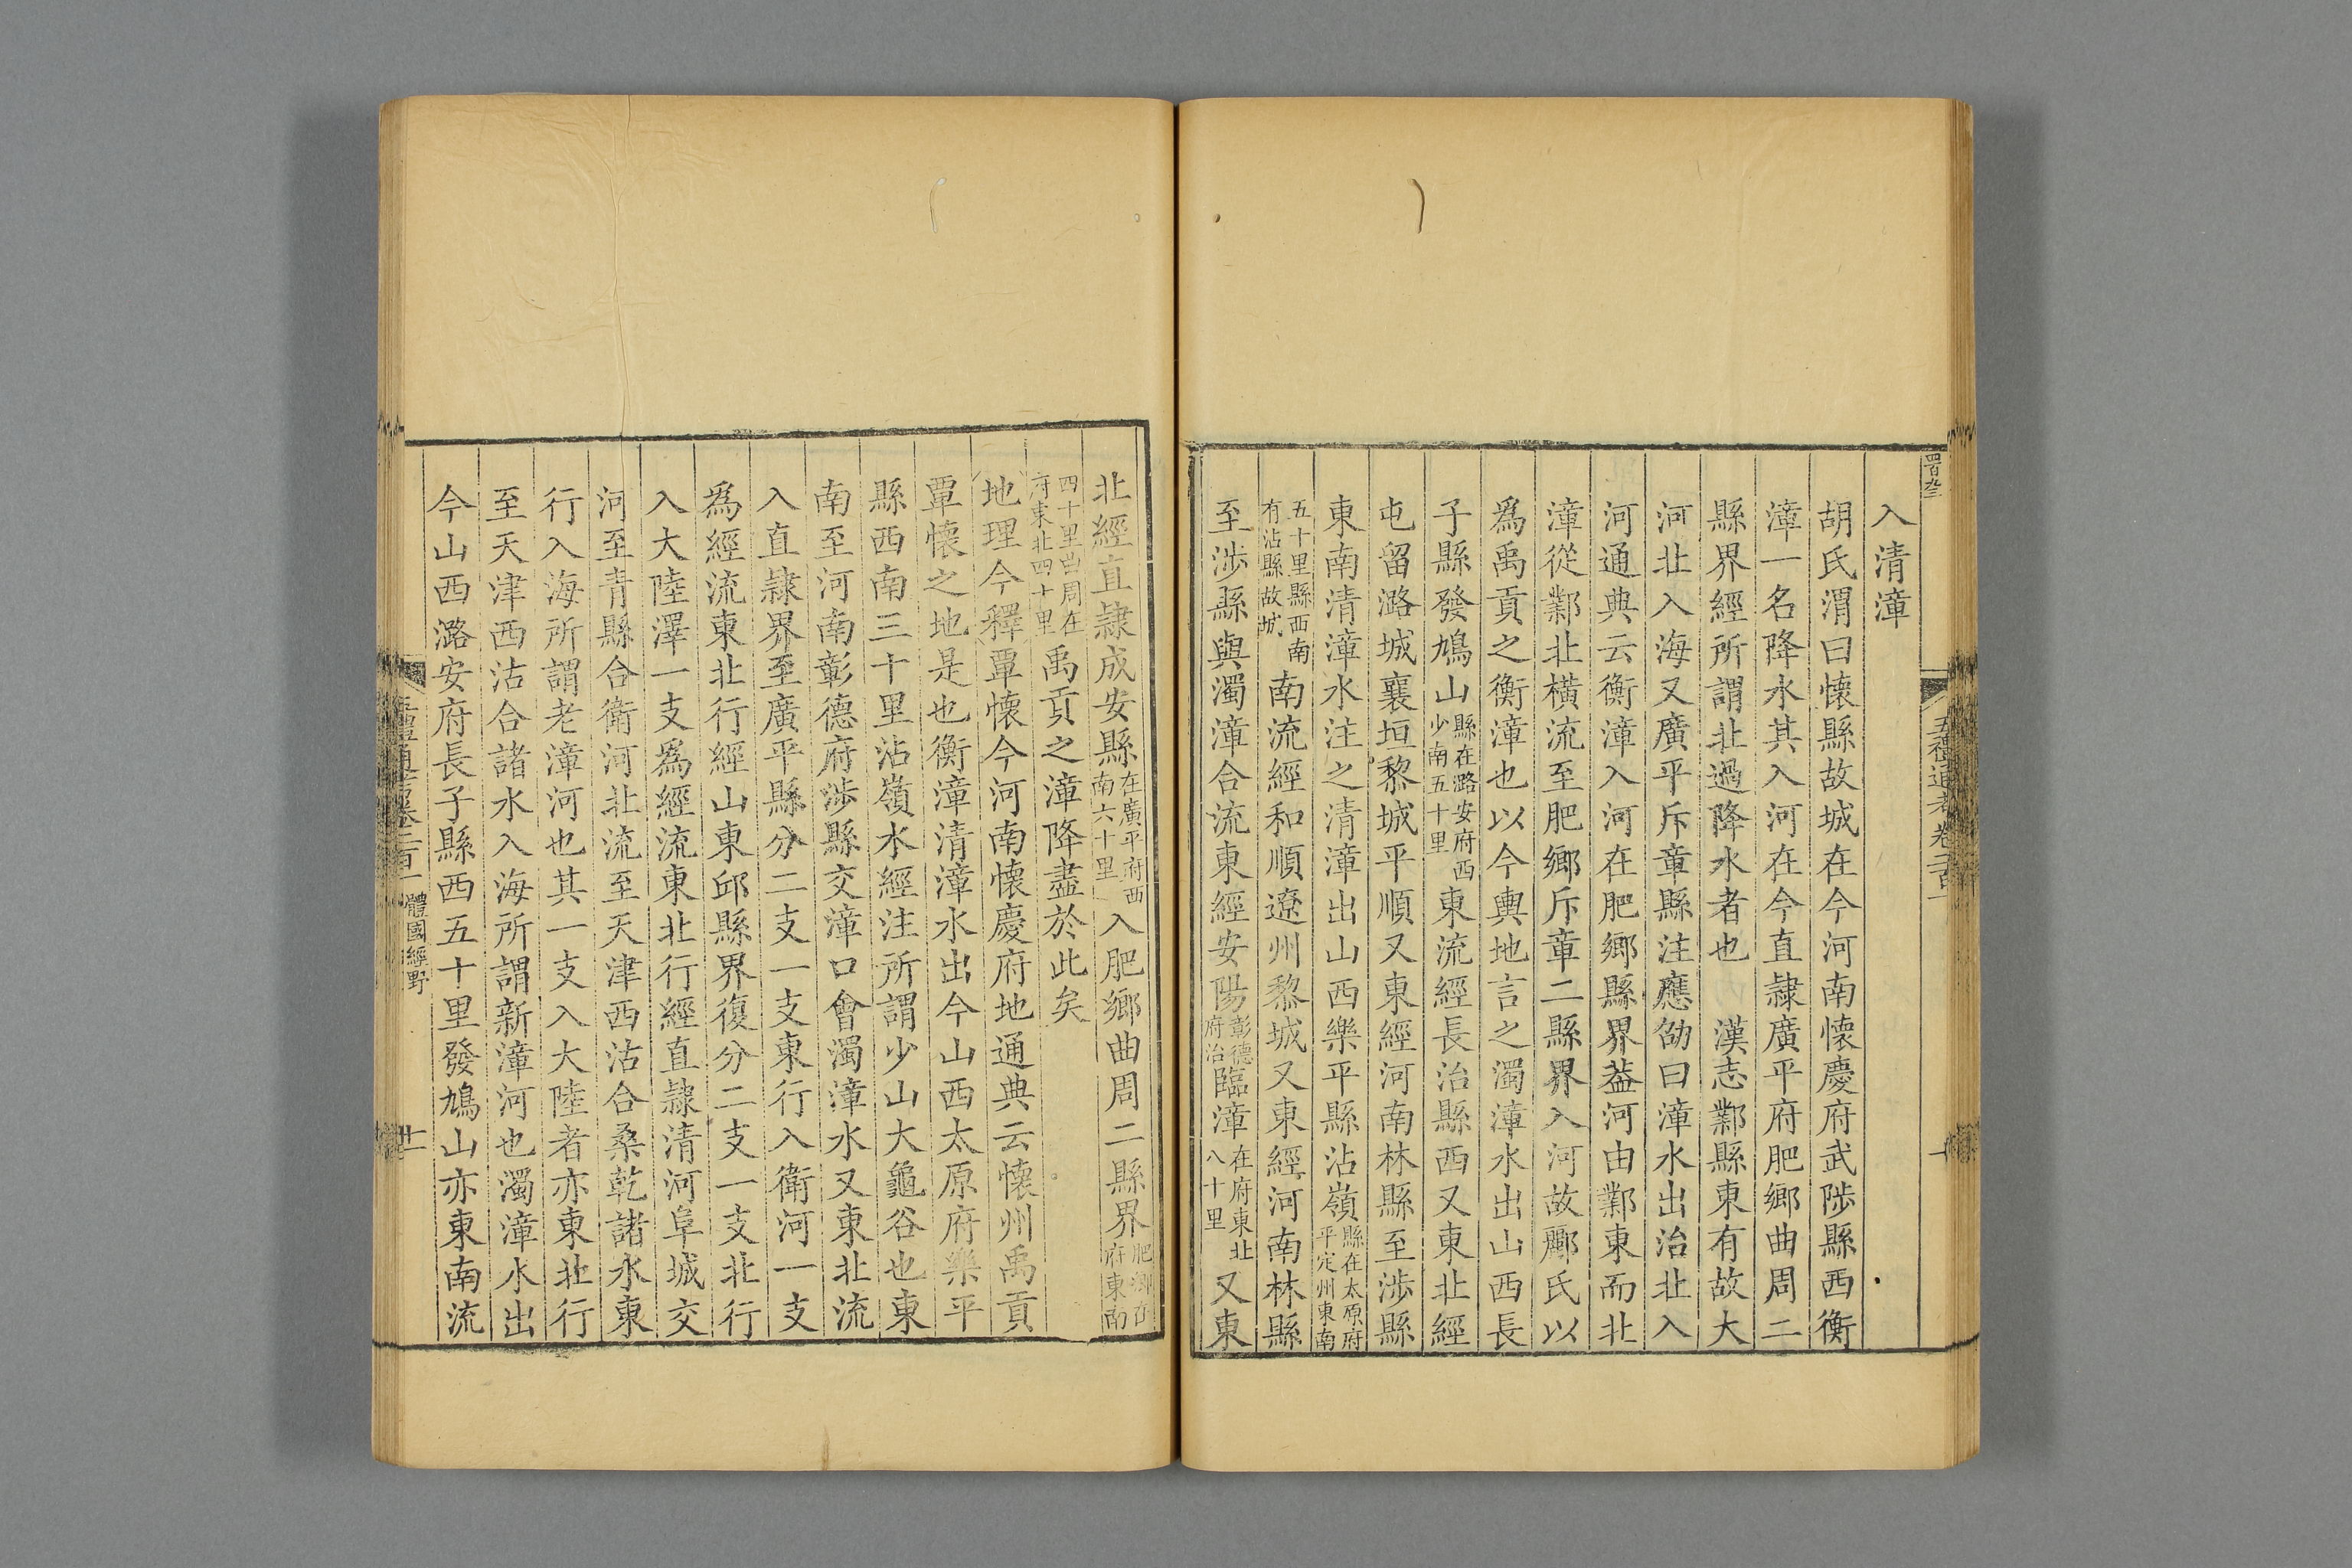 入清漳
胡氏渭曰懷縣故城在今河南懷慶府武陟縣西衡
漳一名降水其入河在今直隷廣平府肥鄉曲周二
縣界經所謂北過降水者也　漢志鄴縣東有故大
河北入海又廣平斥章縣注應劭曰漳水出治北入
河通典云衡漳入河在肥鄉縣界葢河由鄴東而北
漳從鄴北橫流至肥鄉斥章二縣界入河故酈氏以
爲禹貢之衡漳也以今輿地言之濁漳水出山西長
子縣發鳩山縣在潞安府西少南五十里東流經長治縣西又東北經
屯留潞城襄垣黎城平順又東經河南林縣至涉縣
東南清漳水注之清漳出山西樂平縣沾嶺縣在太原府平定州東南
五十里縣西南有沾縣故城南流經和順遼州黎城又東經河南林縣
至涉縣與濁漳合流東經安陽彰德府治臨漳在府東北八十里又東
北經直隷成安縣在廣平府西南六十里入肥鄉曲周二縣界肥鄉在府東南
四十里曲周在府東北四十里禹貢之漳降盡於此矣
地理今釋覃懷今河南懷慶府地通典云懷州禹貢
覃懷之地是也衡漳清漳水出今山西太原府樂平
縣西南三十里沾嶺水經注所謂少山大黽谷也東
南至河南彰德府涉縣交漳口會濁漳水又東北流
入直隷界至廣平縣分二支一支東行入衛河一支
爲經流東北行經山東邱縣界復分二支一支北行
入大陸澤一支爲經流東北行經直隷清河阜城交
河至青縣合衛河北流至天津西沽合桑乾諸水東
行入海所謂老漳河也其一支入大陸者亦東北行
至天津西沽合諸水入海所謂新漳河也濁漳水出
今山西潞安府長子縣西五十里發鳩山亦東南流
體國經野